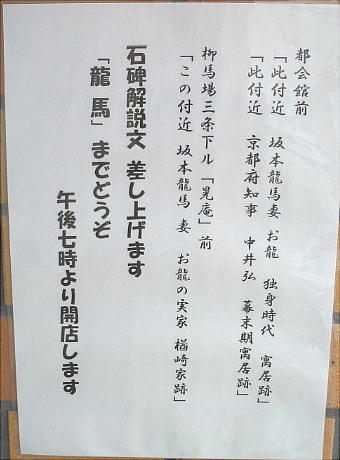 都会館前
「此付近 坂本龍馬妻 お龍 独身時代 寓居跡」
「此付近 京都府知事 中井弘 幕末期寓居跡」
柳馬場三条下ル「晃庵」前
「この付近 坂本龍馬 妻 お龍の実家 楢崎家跡」
石碑解説文 差し上げます
「龍馬」までどうぞ
午後七時より開店します